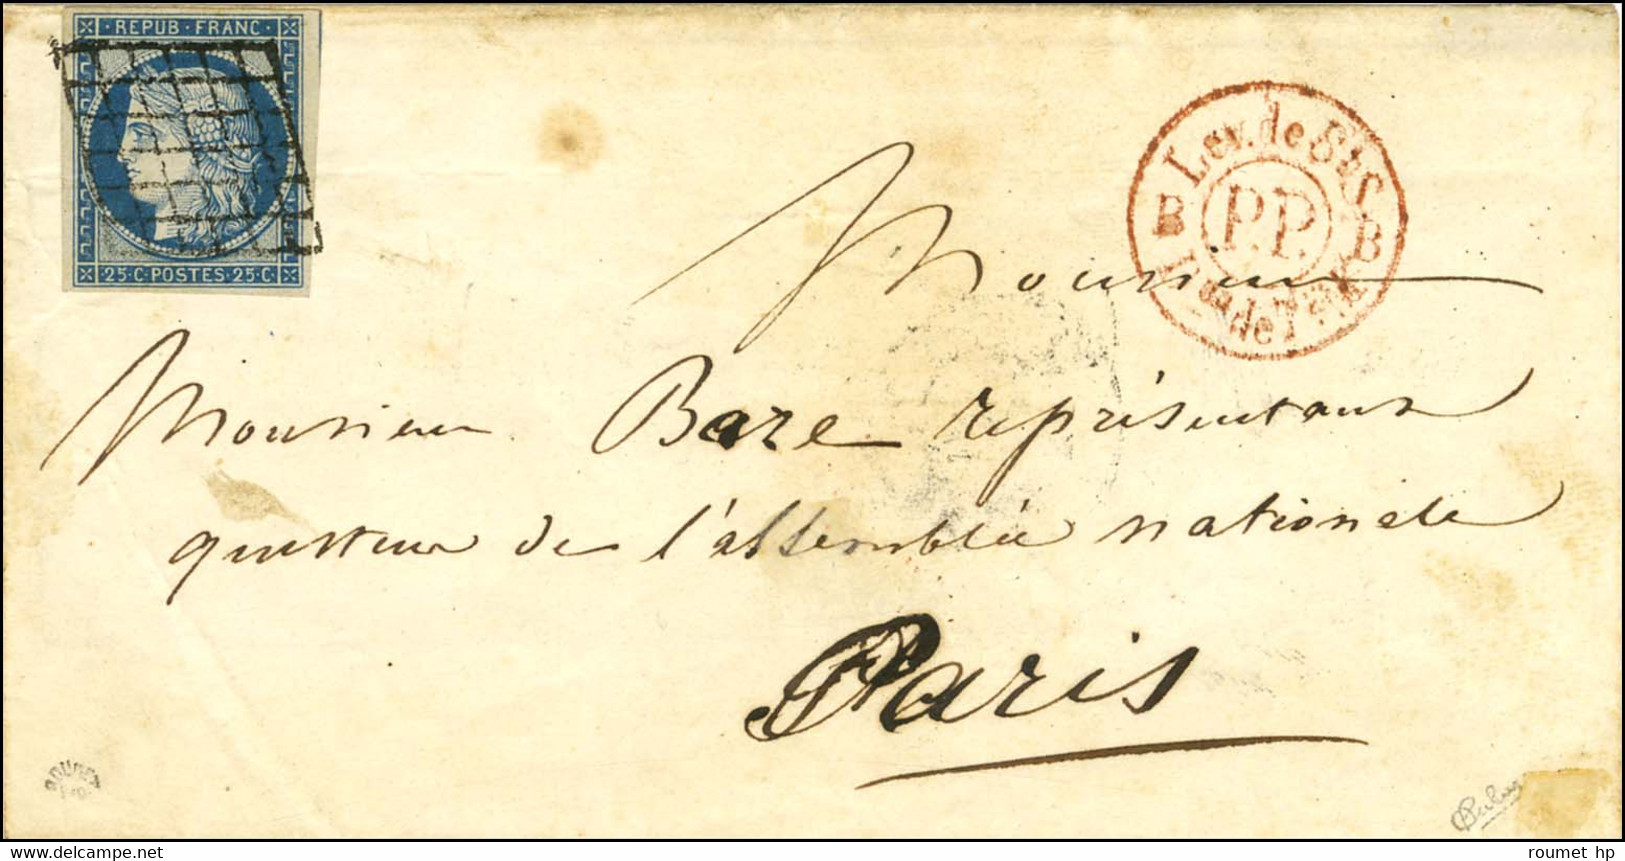 REPUB · FRANC ·
25 · C · POSTES · 25 · C ·
Lev. de
B P.P. B
de
Monsieur
Monsieur Baze représentant
questeur de l'assemblée nationale
Paris
roumet hp
www.delcampe.net